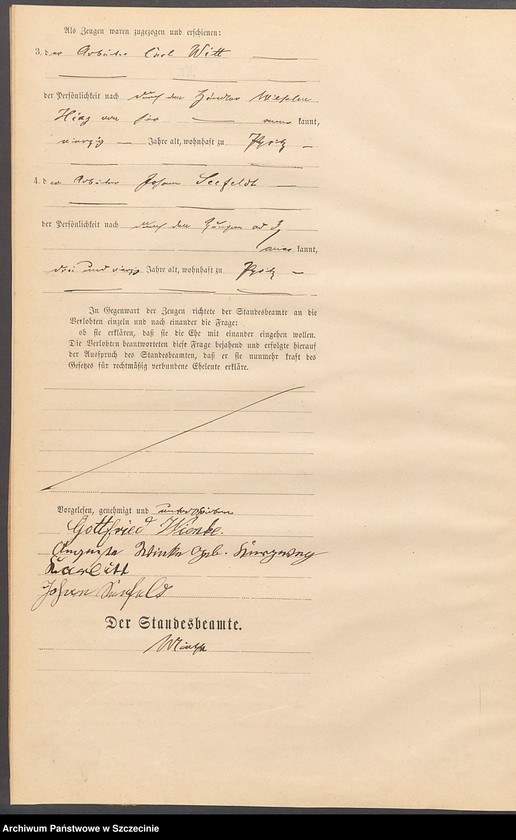 Als Zeugen waren zugezogen und erschienen:
3. der Arbeiter Carl Witt
der Persönlichkeit nach durch den Händler
kannt,
vierzig Jahre alt, wohnhaft zu Pyritz
4. der Arbeiter Johann Seefeldt
der Persönlichkeit nach durch den Zeugen ad 3
kannt,
drei und vierzig Jahre alt, wohnhaft zu Pyritz
In Gegenwart der Zeugen richtete der Standesbeamte an die
Verlobten einzeln und nach einander die Frage:
ob sie erklären, daß sie die Ehe mit einander eingehen wollen.
Die Verlobten beantworteten diese Frage bejahend und erfolgte hierauf
der Ausspruch des Standesbeamten, daß er sie nunmehr kraft des
Gesetzes für rechtmäßig verbundene Eheleute erkläre.
Vorgelesen, genehmigt und unterschrieben
Gottfried
Auguste geb.
Karl Witt
Johann Seefeld
Der Standesbeamte.
Archiwum Państwowe w Szczecinie